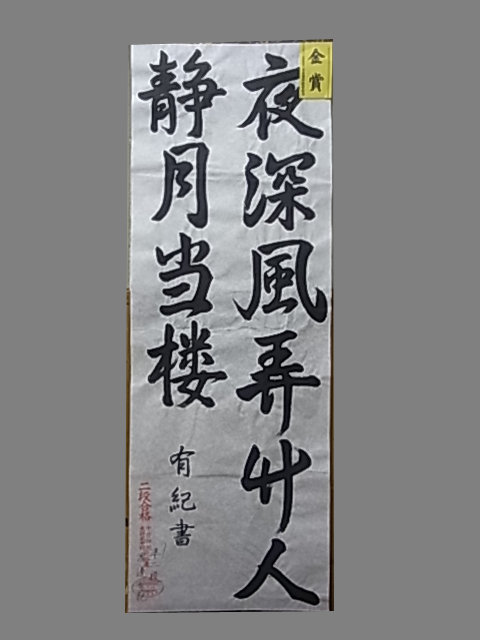 金賞
夜深風弄竹人
静月当楼
有紀書
二段合格